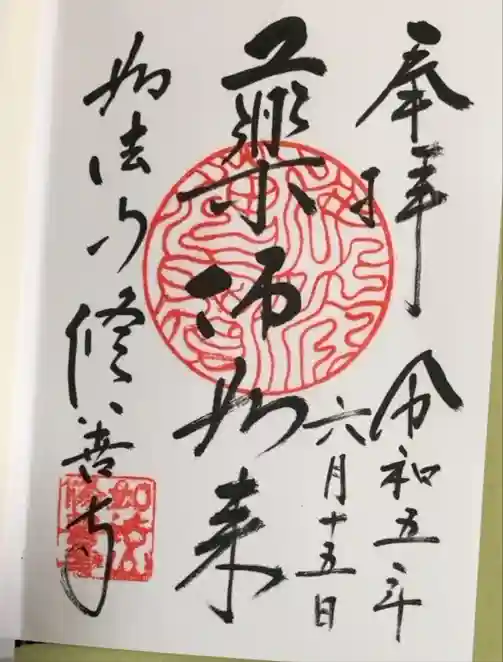 奉拝
令和五年
六月十五日
薬師如来
如法山修善寺